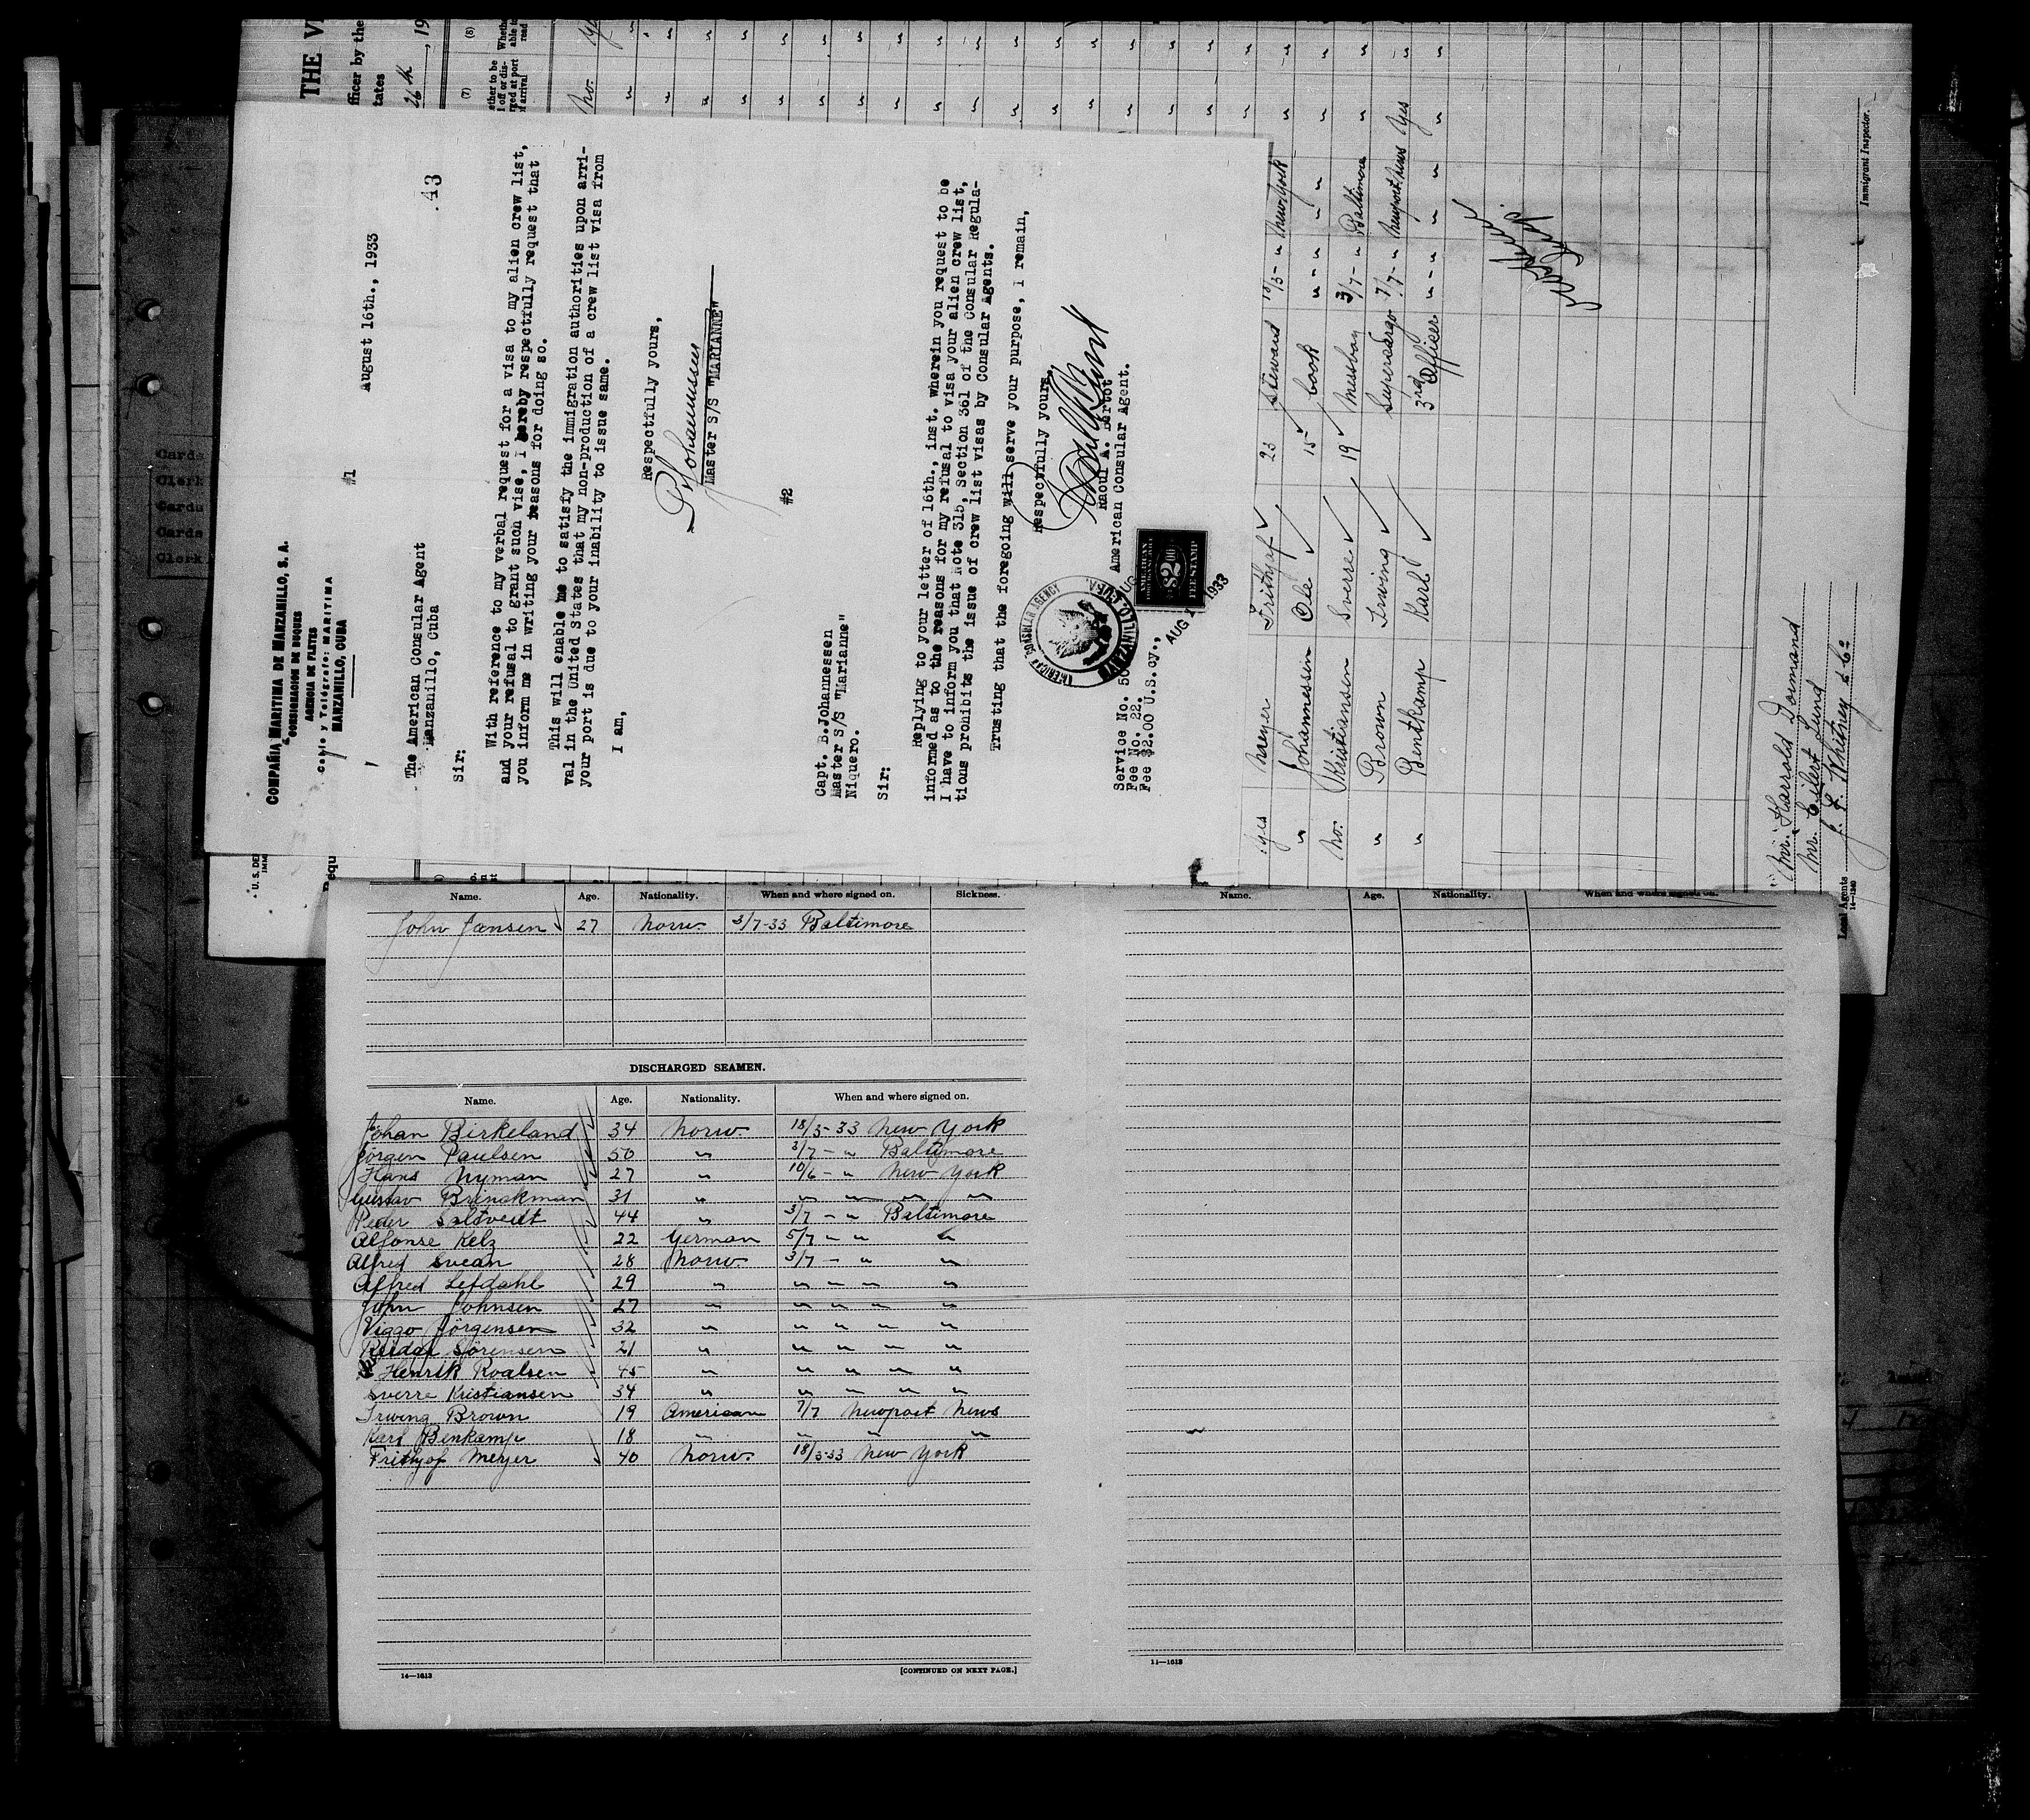 COMPAÑIA MARITIMA DE MANZANILLO, S. A.
CONSIGNACION DE BUQUES
AGENCIA DE FLETES
Cable y Telégrafo: MARITIMA
MANZANILLO, CUBA
43
#1
August 16th., 1933
The American Consular Agent
Manzanillo, Cuba
Sir:
With reference to my verbal request for a visa to my alien crew list,
and your refusal to grant such vise, I hereby respectfully request that
you inform me in writing your reasons for doing so.
This will enable me to satisfy the immigration authorities upon arri-
val in the United States that my non-production of a crew list visa from
your port is due to your inability to issue same.
I am,
Respectfully yours,
B Johannessen
Master S/S "MARIANNE"
#2
Capt. B.Johannessen
Master S/S "Marianne"
Niquero.
Sir:
Replying to your letter of 16th., inst. wherein you request to be
informed as to the reasons for my refusal to visa your alien crew list,
I have to inform you that Note 315, Section 361 of the Consular Regula-
tions prohibits the issue of crew list visas by Consular Agents.
Trusting that the foregoing will serve your purpose, I remain,
Respectfully yours,
Raoul A. Bertot
American Consular Agent.
Service No. 50
Fee No. 22.
Fee $2.00 U.S.cy.,
AMERICAN CONSULAR AGENCY
MANZANILLO, CUBA.
AMERICAN
$2.00
FEE STAMP
AUG 1933
THE
officer by the
tates
26th, 19
(7)
(8)
yes Meyer Frithjof 23 Steward 18/3 - " New York
" Johannessen Ole 15 Cook " - " " "
No. Kristiansen Sverre 19 Messboy 3/7 - " Baltimore
" Brown Irving Supercargo 7/7 - " Newport News Yes
" Bentkamp Karl 3rd Officer " - " " "
Mr. Harrold Dormand
Mr. Eilert Lund
J. F. Whitney & Co
Local Agents
14-1240
Immigrant Inspector.
Name. Age. Nationality. When and where signed on. Sickness.
John Jansen 27 Norw. 3/7-33 Baltimore
DISCHARGED SEAMEN.
Name. Age. Nationality. When and where signed on.
Johan Birkeland 34 Norw. 18/3-33 New York
Jörgen Paulsen 50 " 3/7 - " Baltimore
Hans Nyman 27 " 10/6 - " New York
Gustav Brinckman 31 " " " " "
Peder Saltvedt 44 " 3/7 - " Baltimore
Alfonse Kelz 22 German 5/7 - " "
Alfred Svean 28 Norw 3/7 - " "
Alfred Lefdahl 29 " " " " "
John Johnsen 27 " " " " "
Viggo Jörgensen 32 " " " " "
Reidar Sörensen 21 " " " " "
Henrik Roalsen 45 " " " " "
Sverre Kristiansen 34 " " " " "
Irwing Brown 19 American 7/7 Newport News
Karl Benkamp 18 " " " "
Frithjof Meyer 40 Norw. 18/3-33 New York
14—1613
[CONTINUED ON NEXT PAGE.]
Name. Age. Nationality. When and where signed on.
11—1613
Cards
Clerk
Cards
Cards
Clerk